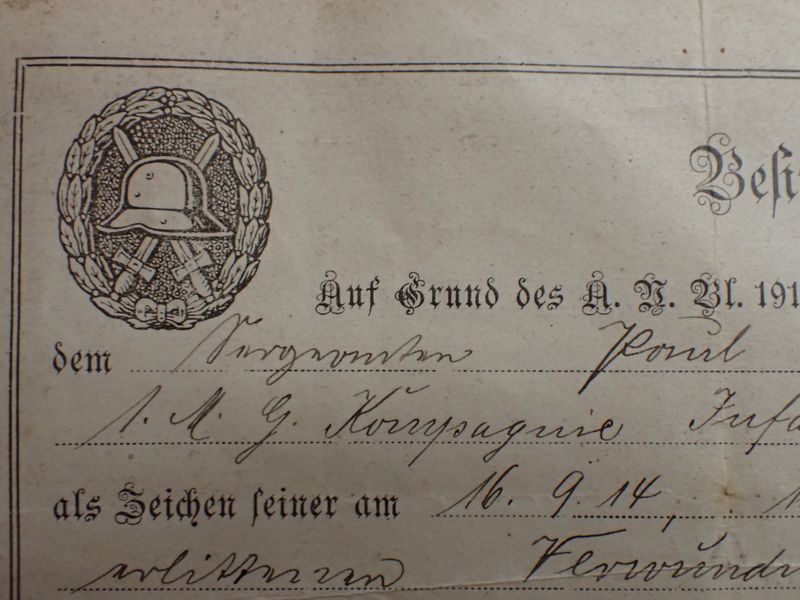 Besi
Auf Grund des A. V. Bl. 191
dem Sergeanten Paul
1. M. G. Kompagnie Infa
als Zeichen seiner am 16. 9. 14, 1
erlittenen Verwund